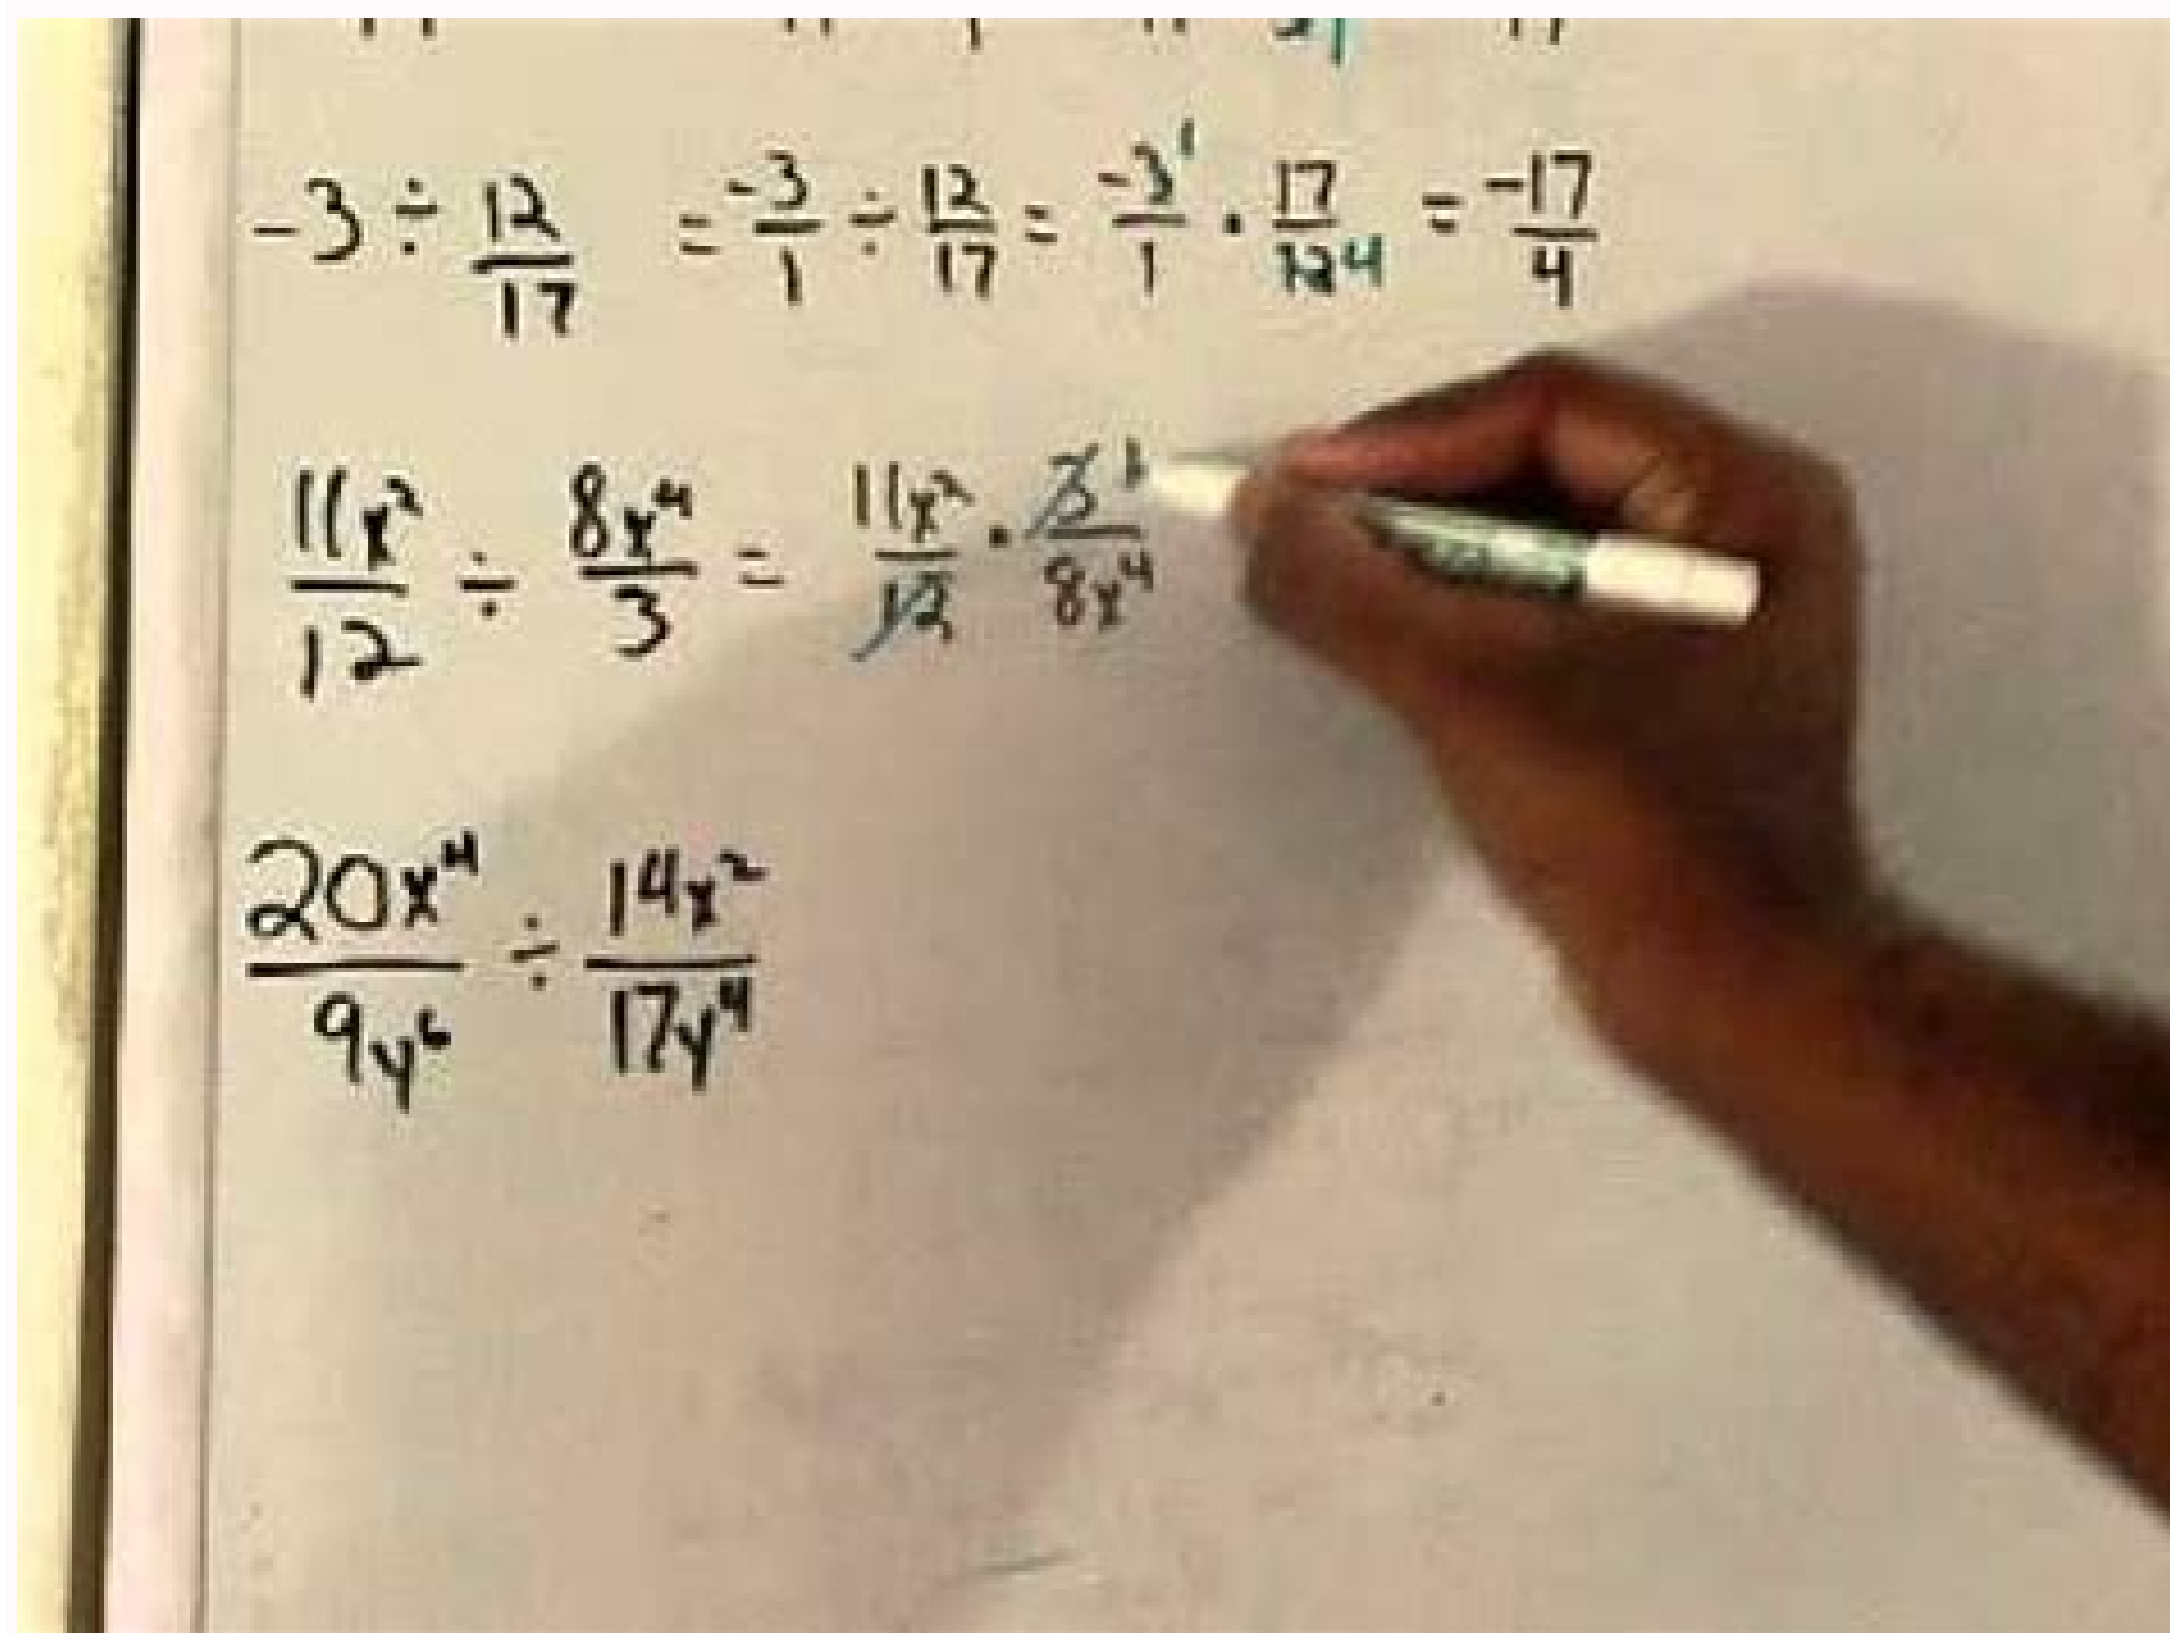 -3 ÷ 12/17 = -3/1 ÷ 12/17 = -3¹/1 · 17/12 4 = -17/4
11x²/12 ÷ 8x⁴/3 = 11x²/12 · 3 1/8x⁴
20x⁴/9y⁶ ÷ 14x²/17y⁴